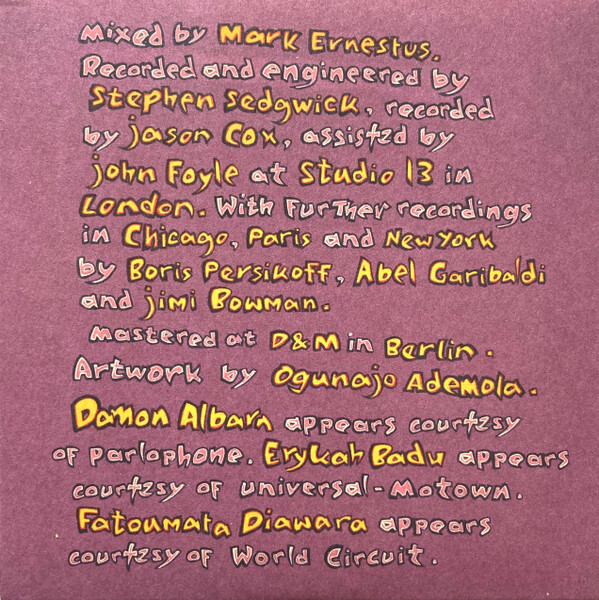 Mixed by Mark Ernestus.
Recorded and engineered by
Stephen Sedgwick, recorded
by Jason Cox, assisted by
John Foyle at Studio 13 in
London. With Further recordings
in Chicago, Paris and New York
by Boris Persikoff, Abel Garibaldi
and Jimi Bowman.
Mastered at D&M in Berlin.
Artwork by Ogunajo Ademola.
Damon Albarn appears courtesy
of parlophone. Erykah Badu appears
courtesy of universal-Motown.
Fatoumata Diawara appears
courtesy of World Circuit.